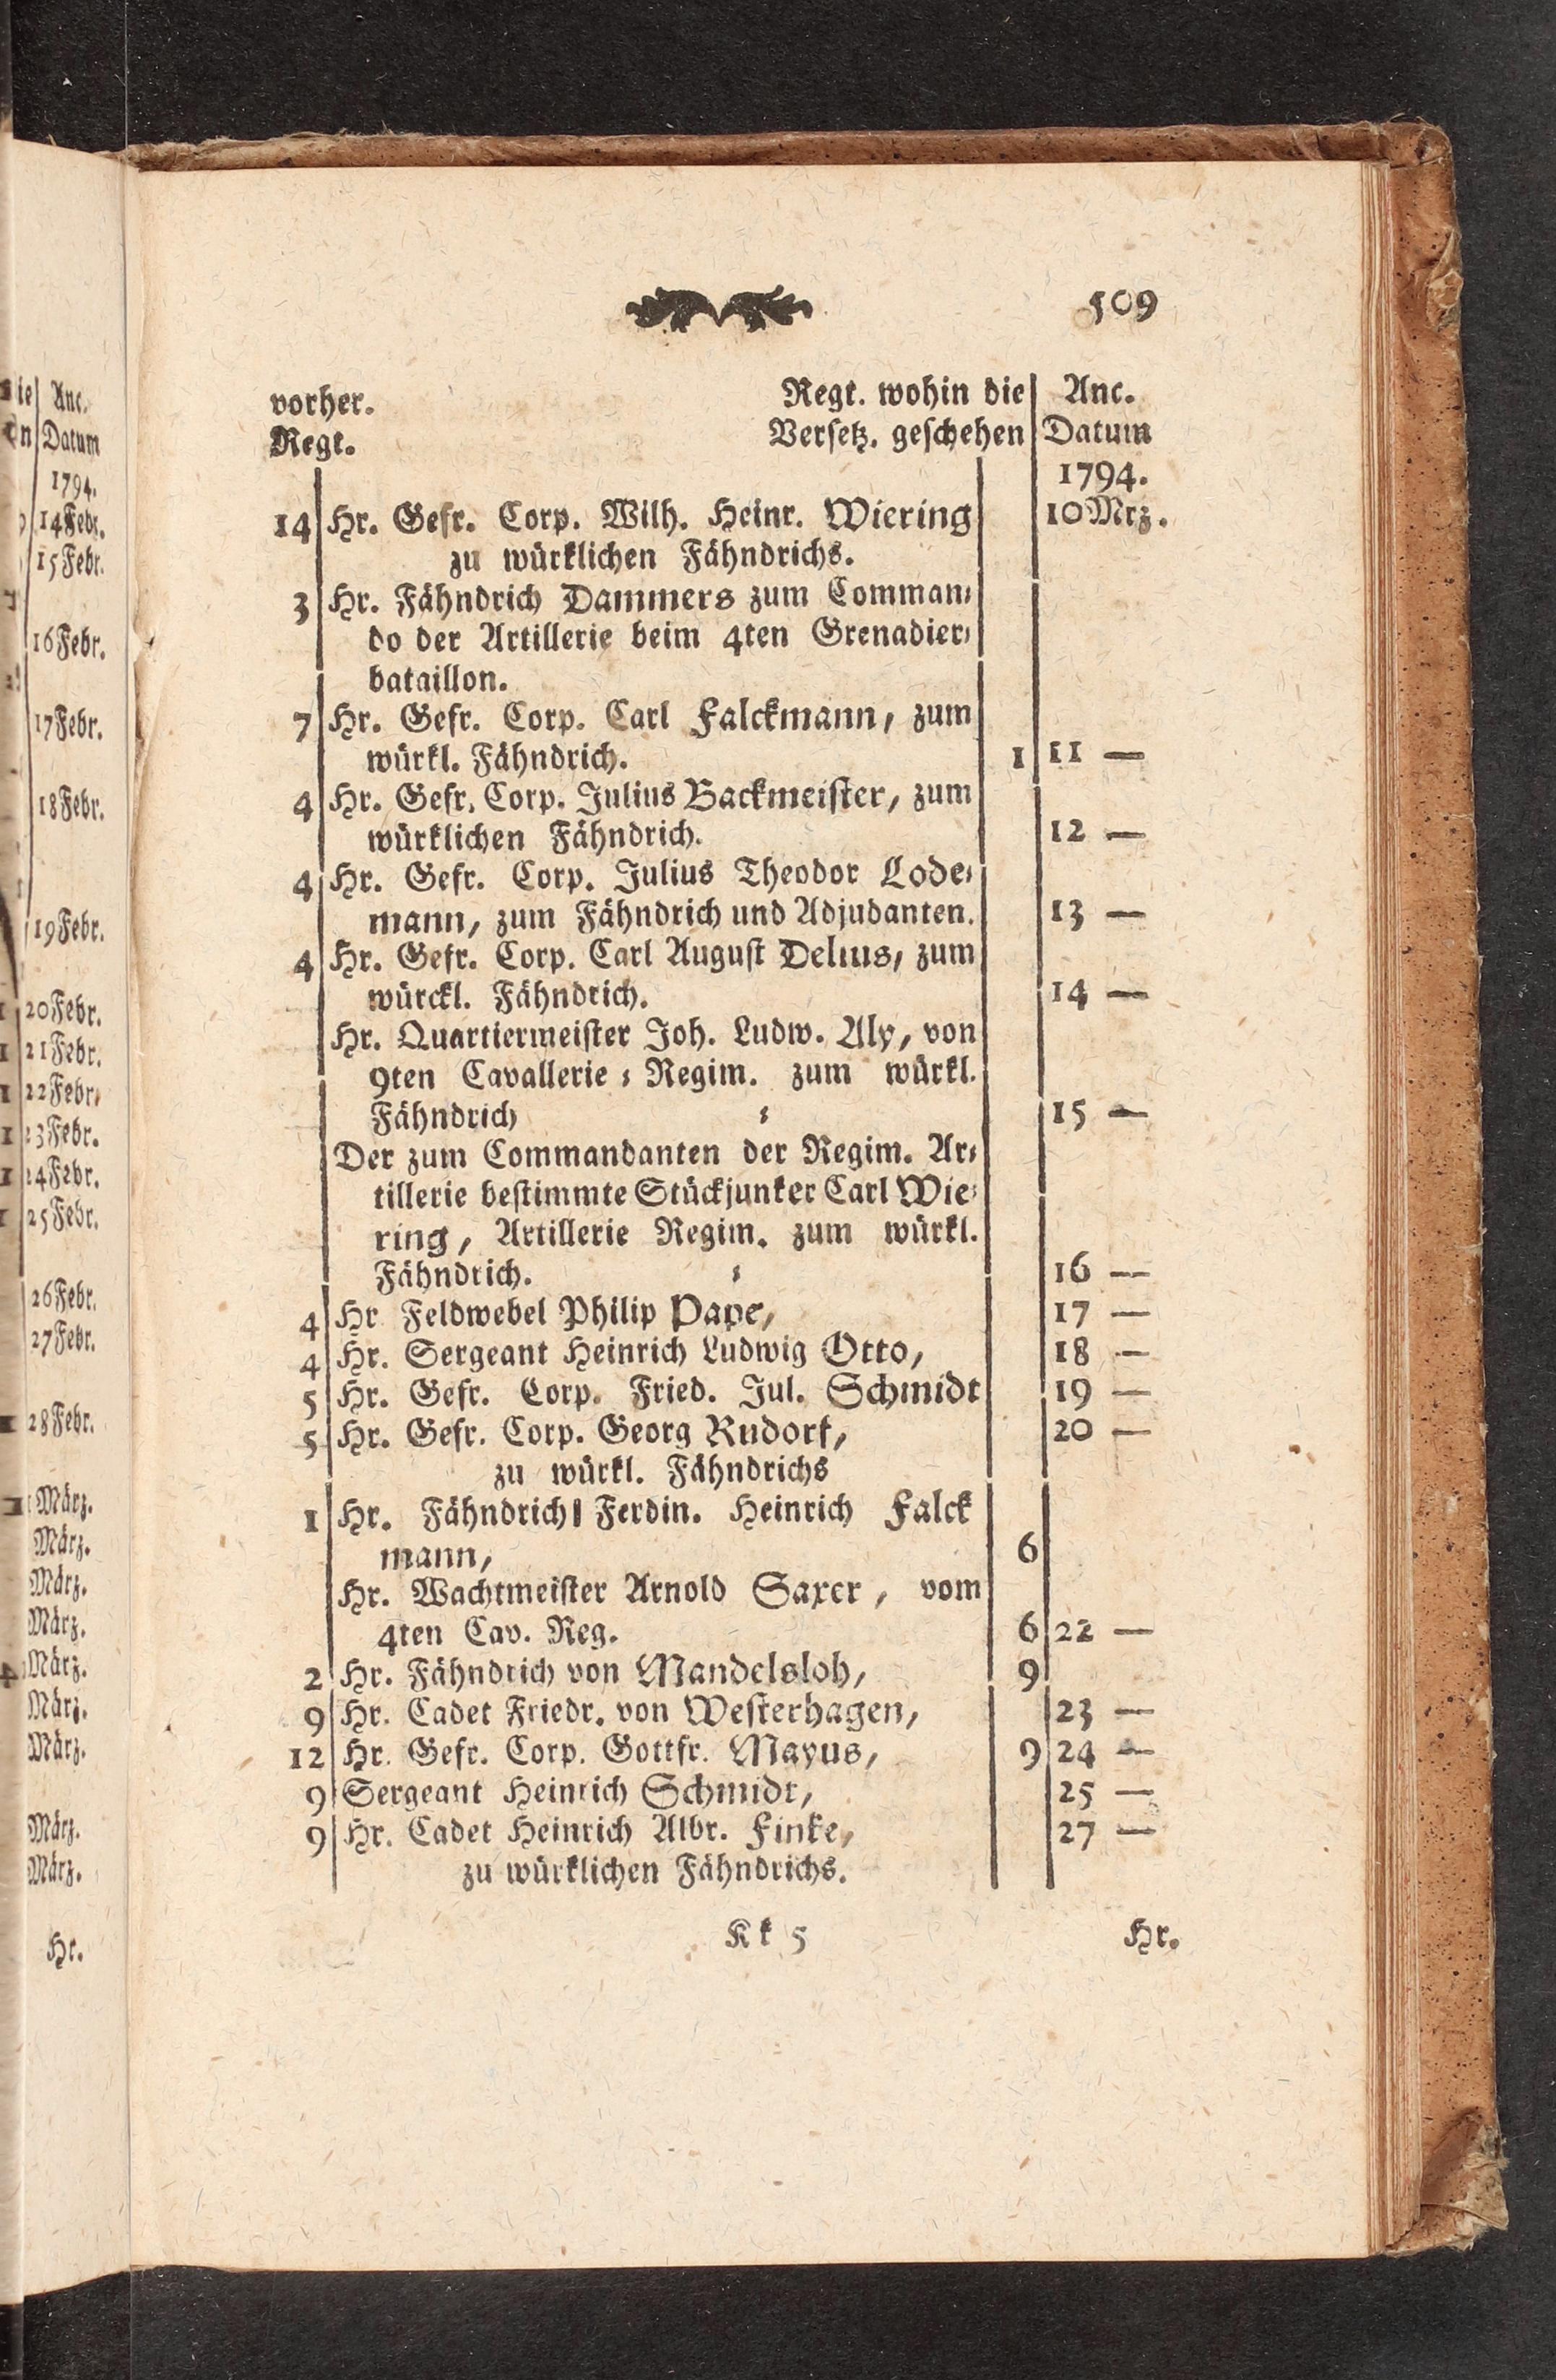 ie Anc.
n Datum
1794.
14Febr.
15Febr.
16Febr.
17Febr.
18Febr.
19Febr.
20Febr.
21Febr.
22Febr.
23Febr.
24Febr.
25Febr.
26Febr.
27Febr.
28Febr.
März.
März.
März.
März.
März.
März.
März.
März.
März.
Hr.
509
vorher. Regt. wohin die Anc.
Regt. Versetz. geschehen Datum
1794.
14 Hr. Gefr. Corp. Wilh. Heinr. Wiering 10Mrz.
zu würklichen Fähndrichs.
3 Hr. Fähndrich Dammers zum Comman⸗
do der Artillerie beim 4ten Grenadier⸗
bataillon.
7 Hr. Gefr. Corp. Carl Falckmann, zum
würkl. Fähndrich. 1 11 —
4 Hr. Gefr. Corp. Julius Backmeister, zum
würklichen Fähndrich. 12 —
4 Hr. Gefr. Corp. Julius Theodor Lode⸗
mann, zum Fähndrich und Adjudanten. 13 —
4 Hr. Gefr. Corp. Carl August Delius, zum
würckl. Fähndrich. 14 —
Hr. Quartiermeister Joh. Ludw. Aly, von
9ten Cavallerie ⸗ Regim. zum würkl.
Fähndrich ⸗ 15 —
Der zum Commandanten der Regim. Ar⸗
tillerie bestimmte Stückjunker Carl Wie⸗
ring, Artillerie Regim. zum würkl.
Fähndrich. ⸗ 16 —
4 Hr Feldwebel Philip Pape, 17 —
4 Hr. Sergeant Heinrich Ludwig Otto, 18 —
5 Hr. Gefr. Corp. Fried. Jul. Schmidt 19 —
5 Hr. Gefr. Corp. Georg Rudorf, 20 —
zu würkl. Fähndrichs
1 Hr. Fähndrich Ferdin. Heinrich Falck
mann, 6
Hr. Wachtmeister Arnold Saxer, vom
4ten Cav. Reg. 6 22 —
2 Hr. Fähndrich von Mandelsloh, 9
9 Hr. Cadet Friedr. von Westerhagen, 23 —
12 Hr. Gefr. Corp. Gottfr. Mayus, 9 24 —
9 Sergeant Heinrich Schmidt, 25 —
9 Hr. Cadet Heinrich Albr. Finke, 27 —
zu würklichen Fähndrichs.
Kk 5 Hr.